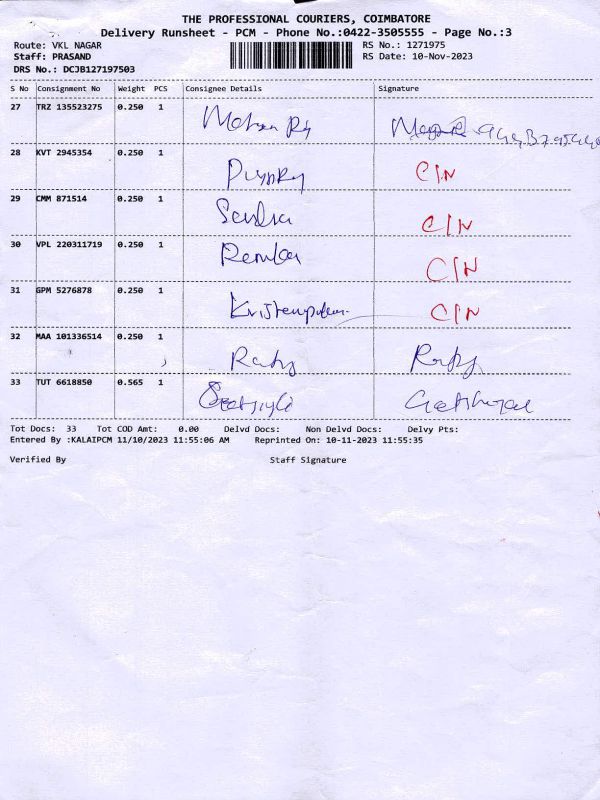 THE PROFESSIONAL COURIERS, COIMBATORE
Delivery Runsheet - PCM - Phone No.:0422-3505555 - Page No.:3
Route: VKL NAGAR RS No.: 1271975
Staff: PRASAND RS Date: 10-Nov-2023
DRS No.: DCJB127197503
S No Consignment No Weight PCS Consignee Details Signature
27 TRZ 135523275 0.250 1 Mohan Raj
28 KVT 2945354 0.250 1 C/N
29 CMM 871514 0.250 1 C/N
30 VPL 220311719 0.250 1 C/N
31 GPM 5276878 0.250 1 C/N
32 MAA 101336514 0.250 1
33 TUT 6618850 0.565 1
Tot Docs: 33 Tot COD Amt: 0.00 Delvd Docs: Non Delvd Docs: Delvy Pts:
Entered By :KALAIPCM 11/10/2023 11:55:06 AM Reprinted On: 10-11-2023 11:55:35
Verified By Staff Signature